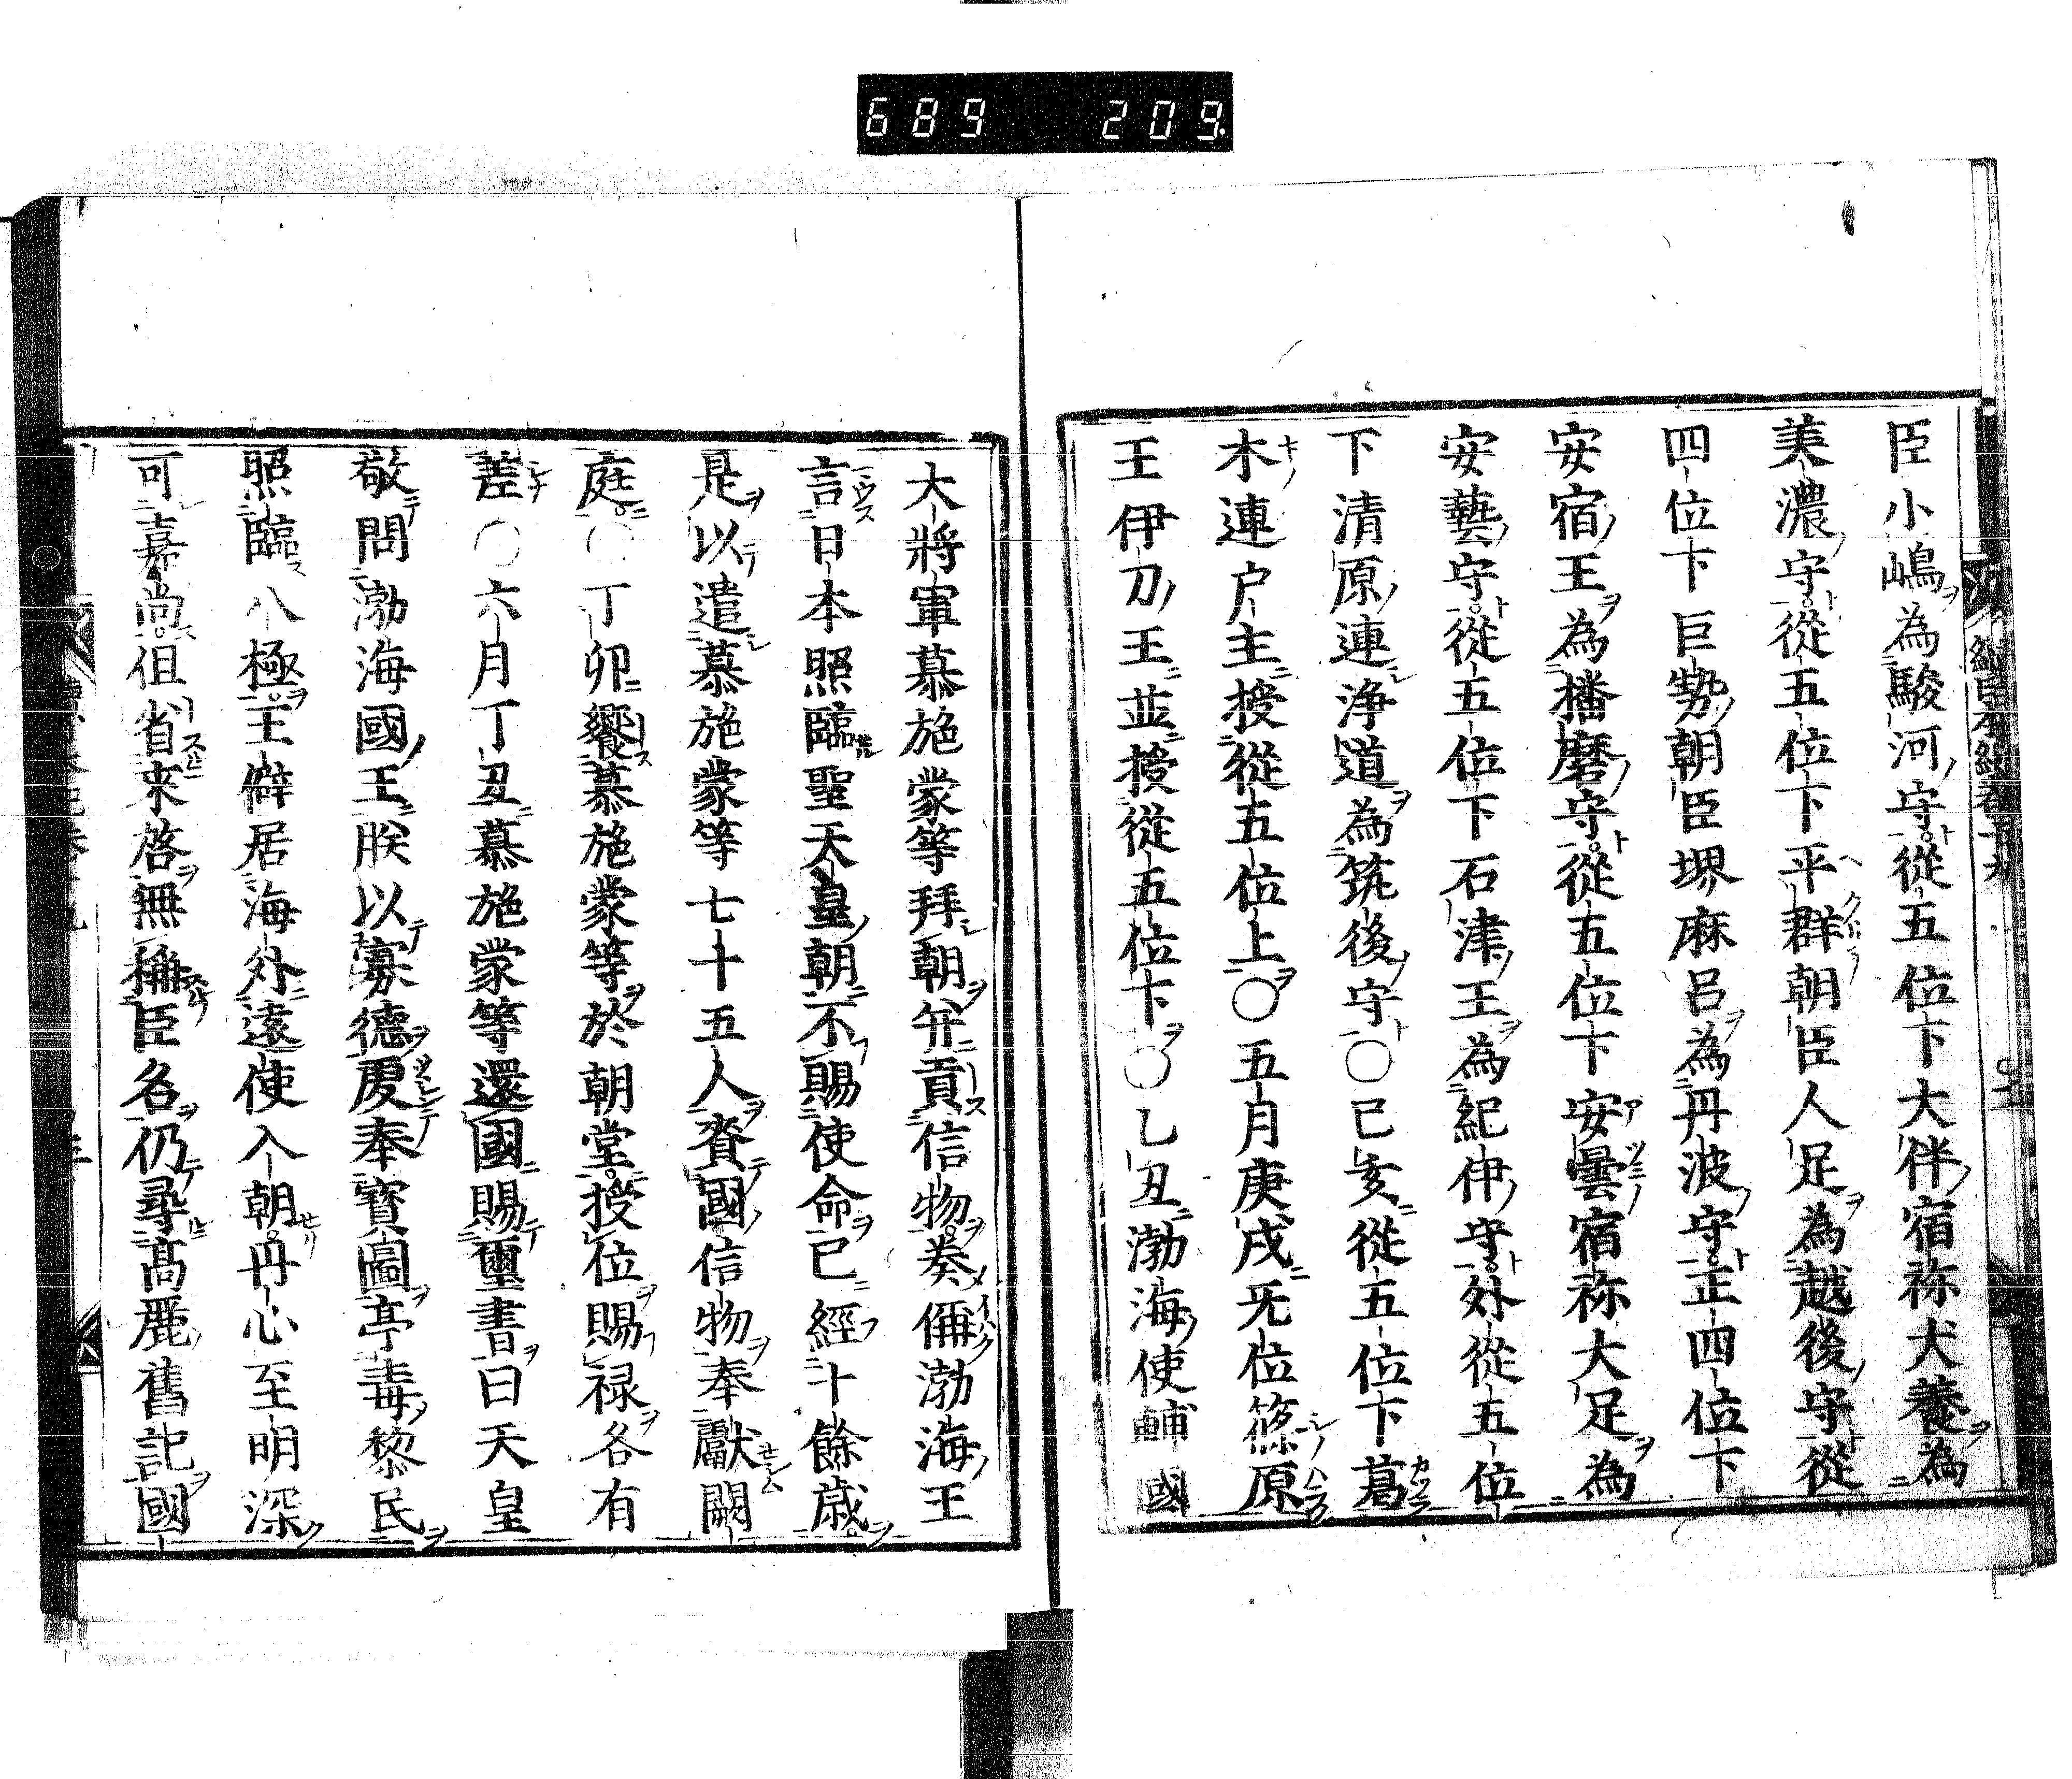 689 209
臣小嶋為駿河守從五位下大伴宿祢犬養為
美濃守從五位下平群朝臣人足為越後守從
四位下巨勢朝臣堺麻呂為丹波守正四位下
安宿王為播磨守從五位下安曇宿祢大足為
安藝守從五位下石津王為紀伊守外從五位
下清原連浄道為筑後守〇己亥從五位下葛
木連戸主授從五位上〇五月庚戌无位篠原
王伊刀王並授從五位下〇乙丑渤海使輔國
大將軍慕施蒙等拜朝并貢信物奏偁渤海王
言日本照臨聖天皇朝不賜使命已經十餘歳
是以遣慕施蒙等七十五人賚國信物奉獻闕
庭〇丁卯饗慕施蒙等於朝堂授位賜禄各有
差〇六月丁丑慕施蒙等還國賜璽書曰天皇
敬問渤海國王朕以寡德虔奉寳圖亭毒黎民
照臨八極王僻居海外遠使入朝丹心至明深
可嘉尚但省来啓無稱臣名仍尋髙麗舊記國